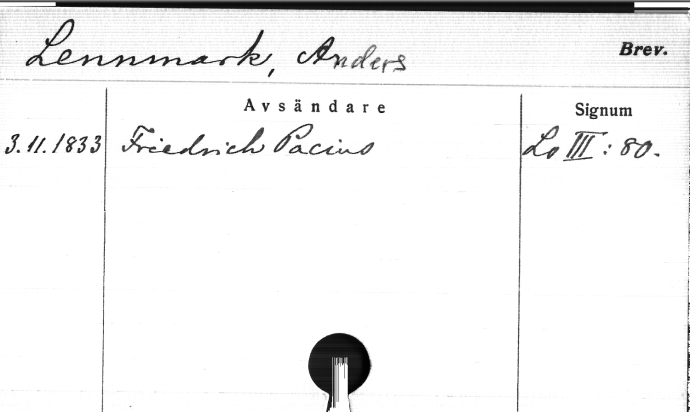 Lennmark, Anders
Brev.
Avsändare
Signum
3.11.1833 Friedrich Pacius Lo III: 80.